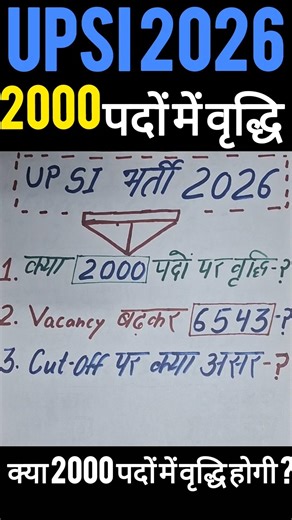 UPSI 2026
2000 पदों में वृद्धि
UPSI भर्ती 2026
1. क्या 2000 पदों पर वृद्धि-?
2. Vacancy बढ़कर 6543-?
3. Cut-off पर क्या असर-?
क्या 2000 पदों में वृद्धि होगी ?